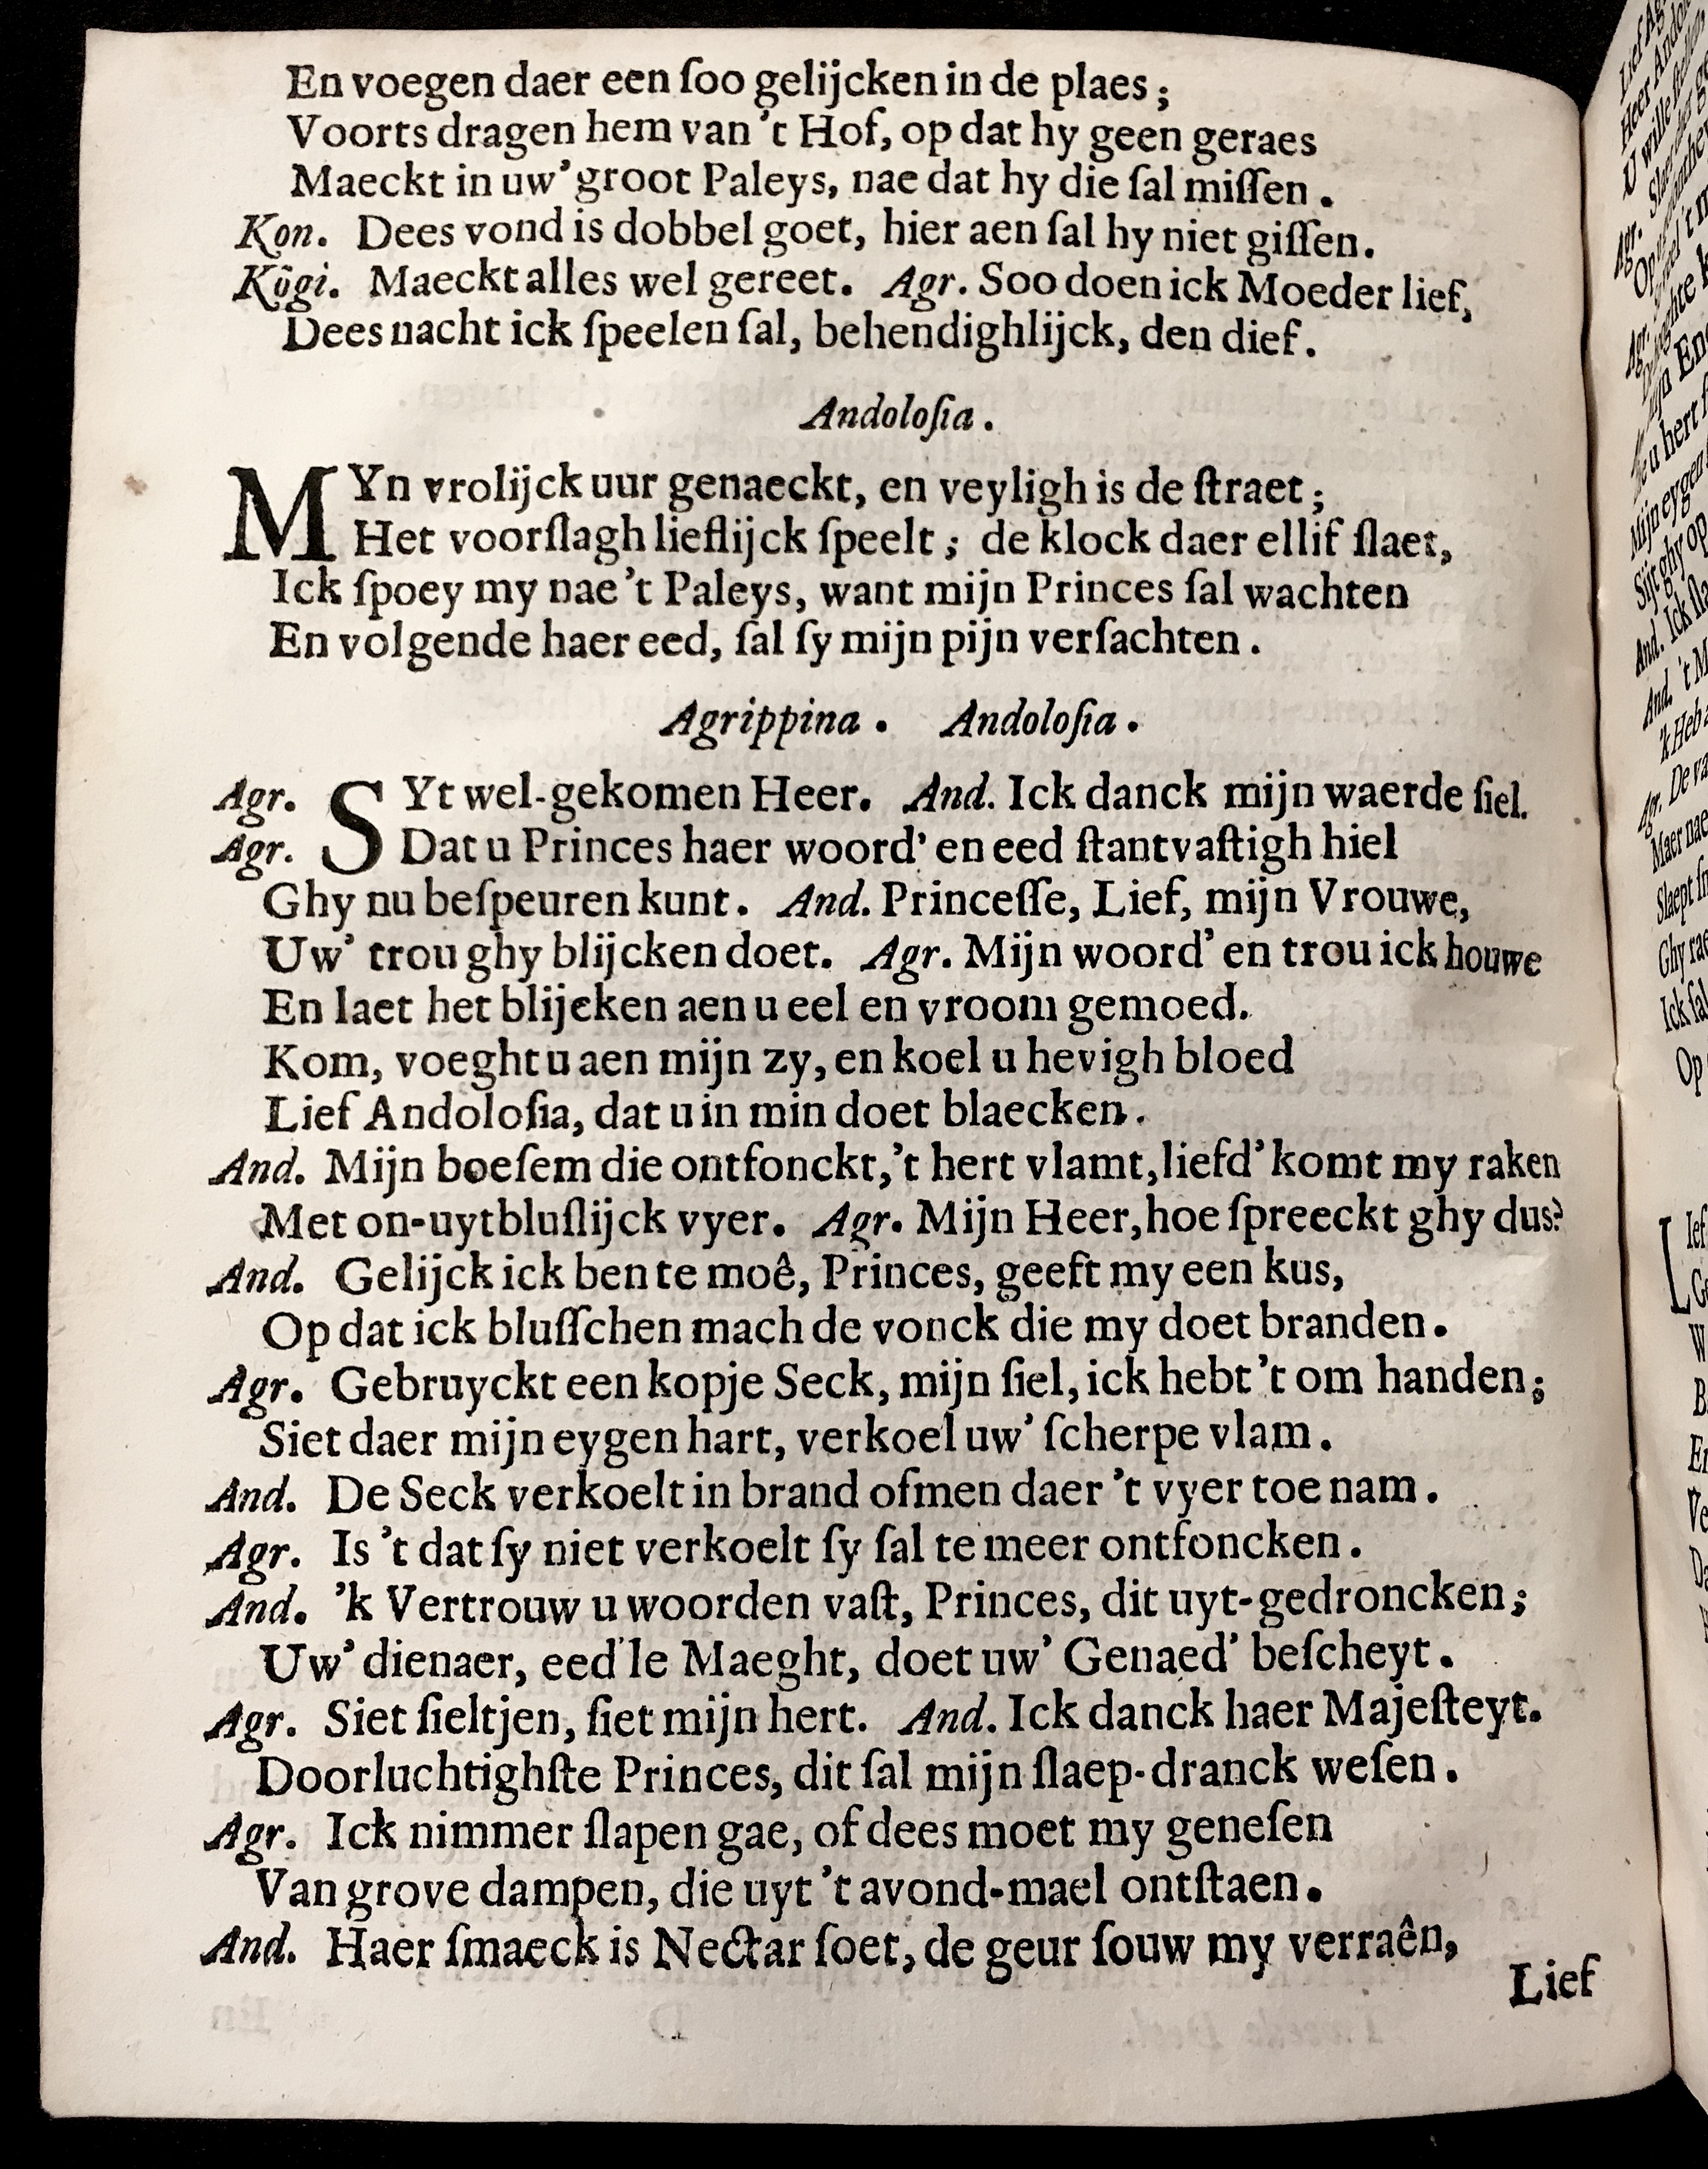 En voegen daer een ſoo gelijcken in de plaes;
Voorts dragen hem van 't Hof, op dat hy geen geraes
Maeckt in uw' groot Paleys, nae dat hy die ſal miſſen.
Kon. Dees vond is dobbel goet, hier aen ſal hy niet giſſen.
Kōgi. Maeckt alles wel gereet. Agr. Soo doen ick Moeder lief,
Dees nacht ick ſpeelen ſal, behendighlijck, den dief.
Andoloſia.
MYn vrolijck uur genaeckt, en veyligh is de ſtraet;
Het voorſlagh lieflijck ſpeelt; de klock daer ellif ſlaet,
Ick ſpoey my nae 't Paleys, want mijn Princes ſal wachten
En volgende haer eed, ſal ſy mijn pijn verſachten.
Agrippina. Andoloſia.
Agr. SYt wel-gekomen Heer. And. Ick danck mijn waerde ſiel.
Agr. Dat u Princes haer woord' en eed ſtantvaſtigh hiel
Ghy nu beſpeuren kunt. And. Princeſſe, Lief, mijn Vrouwe,
Uw' trou ghy blijcken doet. Agr. Mijn woord' en trou ick houwe
En laet het blijcken aen u eel en vroom gemoed.
Kom, voeght u aen mijn zy, en koel u hevigh bloed
Lief Andoloſia, dat u in min doet blaecken.
And. Mijn boeſem die ontfonckt, 't hert vlamt, liefd' komt my raken
Met on-uytbluſlijck vyer. Agr. Mijn Heer, hoe ſpreeckt ghy dus?
And. Gelijck ick ben te moê, Princes, geeft my een kus,
Op dat ick bluſſchen mach de vonck die my doet branden.
Agr. Gebruyckt een kopje Seck, mijn ſiel, ick hebt 't om handen;
Siet daer mijn eygen hart, verkoel uw' ſcherpe vlam.
And. De Seck verkoelt in brand ofmen daer 't vyer toe nam.
Agr. Is 't dat ſy niet verkoelt ſy ſal te meer ontfoncken.
And. 'k Vertrouw u woorden vaſt, Princes, dit uyt-gedroncken;
Uw' dienaer, eed'le Maeght, doet uw' Genaed' beſcheyt.
Agr. Siet ſieltjen, ſiet mijn hert. And. Ick danck haer Majeſteyt.
Doorluchtighſte Princes, dit ſal mijn ſlaep-dranck weſen.
Agr. Ick nimmer ſlapen gae, of dees moet my geneſen
Van grove dampen, die uyt 't avond-mael ontſtaen.
And. Haer ſmaeck is Nectar ſoet, de geur ſouw my verraên,
Lief